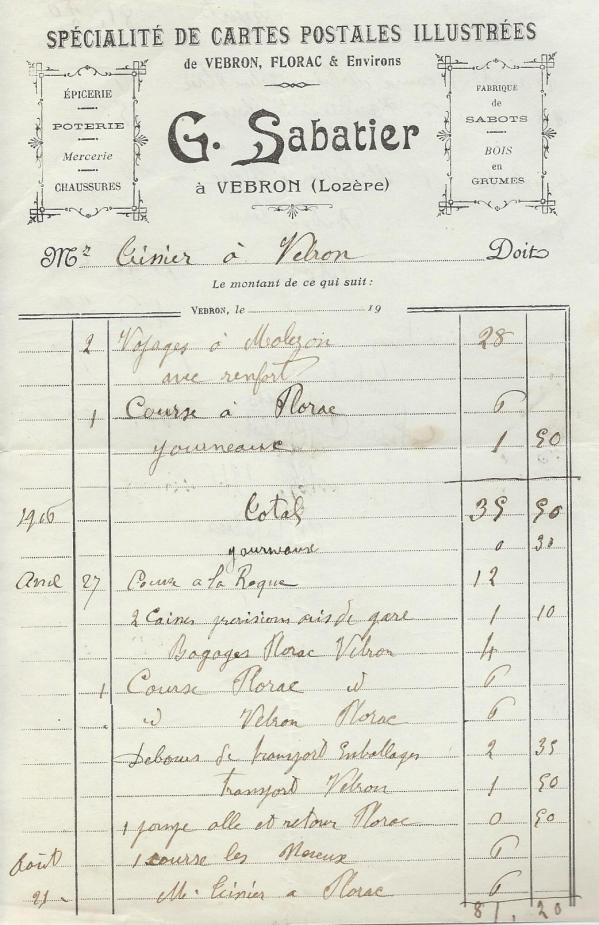 SPÉCIALITÉ DE CARTES POSTALES ILLUSTRÉES
de VEBRON, FLORAC & Environs
ÉPICERIE
POTERIE
Mercerie
CHAUSSURES
G. Sabatier
à VEBRON (Lozère)
FABRIQUE
de
SABOTS
BOIS
en
GRUMES
Mr à Vebron Doit
Le montant de ce qui suit :
VEBRON, le 19
2 Voyages à Molezon 28
avec renfort
1 Course à Florac 6
journeaux 1 50
1906 Total 35 50
journeaux 0 30
27 Course a la Roque 12
2 Caines provisions de gare 1 10
Bagages Florac Vebron 4
1 Course Florac id 6
id Vebron Florac 6
Debours de transport Emballages 2 35
transport Vebron 1 50
1 alle et retour Florac 0 50
Août 1 course les 6
21 M. a Florac 6
81, 20